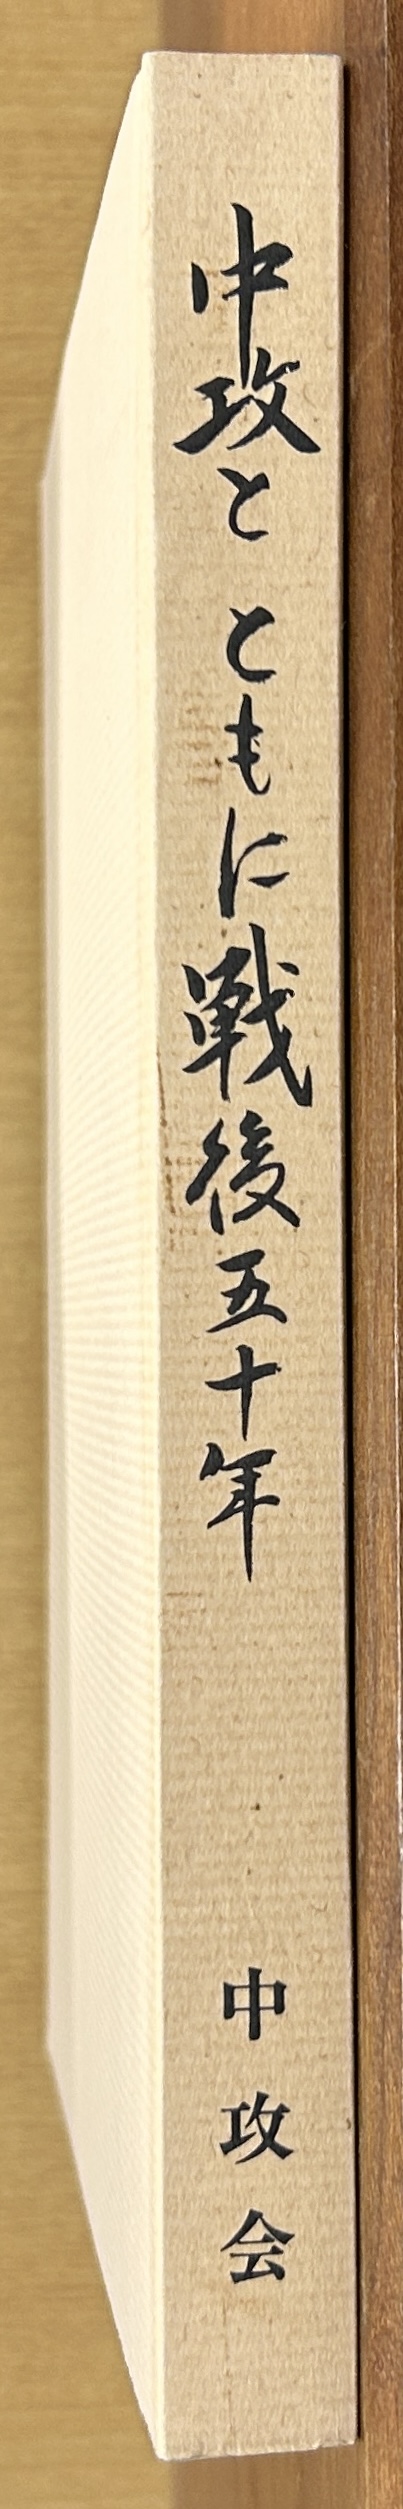 中攻と ともに戦後五十年
中攻会